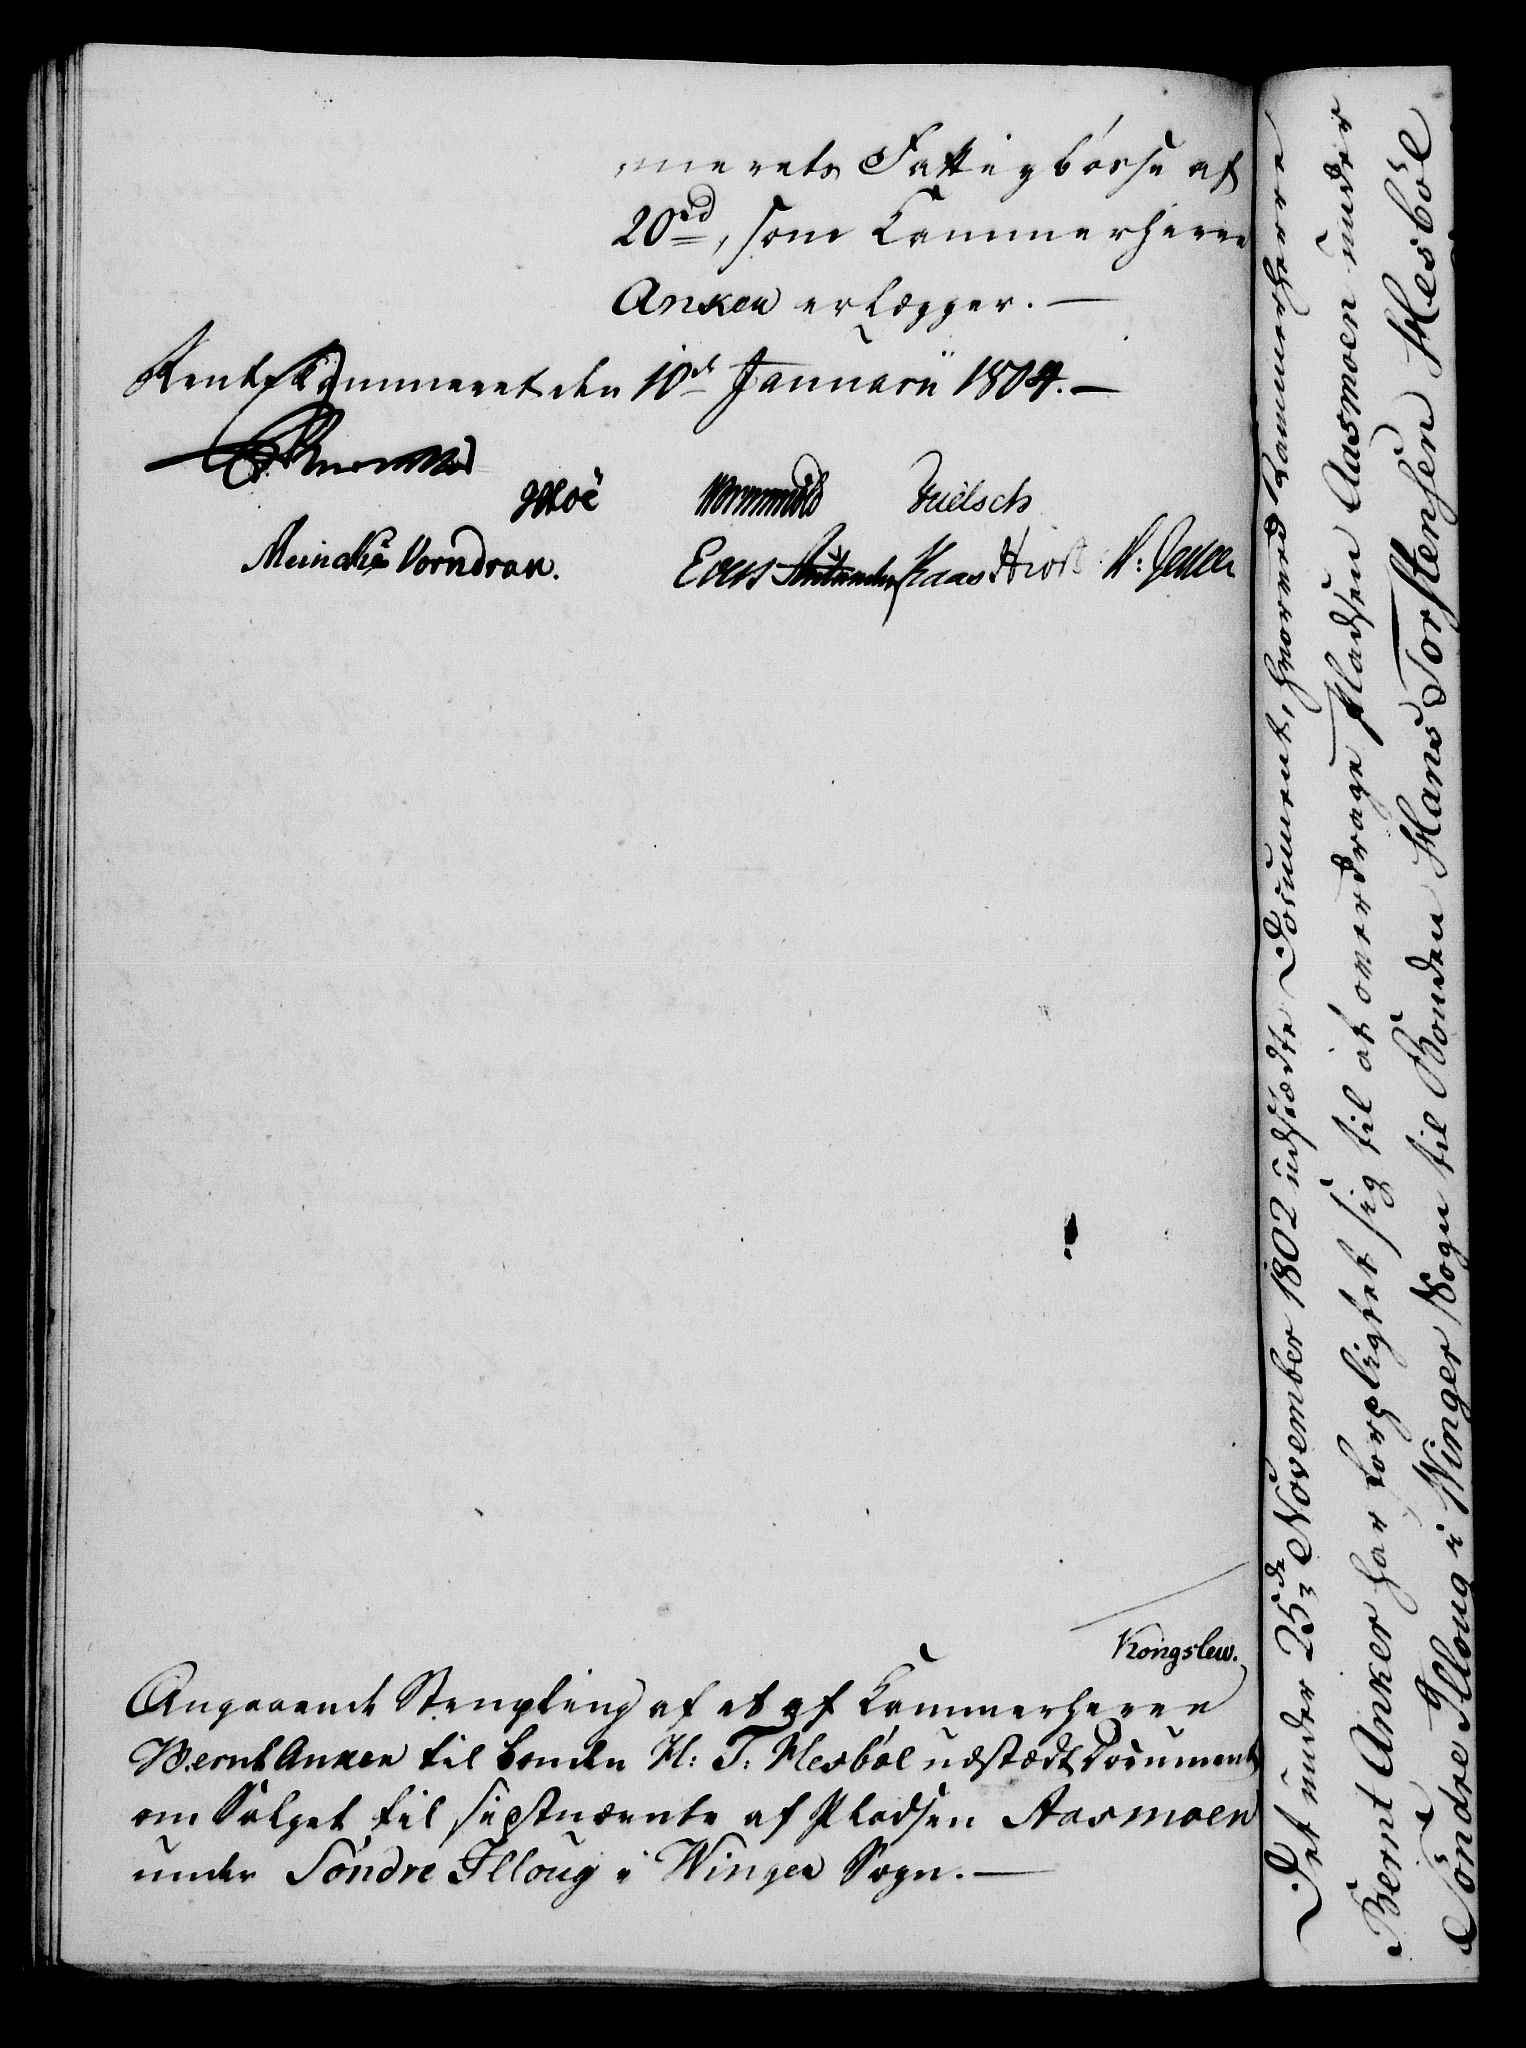 merets Fattigbøsse af
20rd, som Kammerherre
Anker erlægger. —
Rentekammeret den 10de Januarii 1804. —
Wormskiold
Meincke Vorndran.
Kaas Hiort
Kongslew.
Angaaende Stempling af et af Kammerherre
Bernt Anker til bonden H: T: Hesböl udstædt Document
om Salget til sidstnævnte af Pladsen Aasmoen
under Söndre Illoug i Winger Sogn. —
Det under 25de November 1802 udstædte Document, hvorved Kammerherre
Bernt Anker har forpligtet sig til at overdrage Pladsen Aasmoen under
Söndre Illoug i Winger Sogn til Bonden Hans Torstensen Hesböl